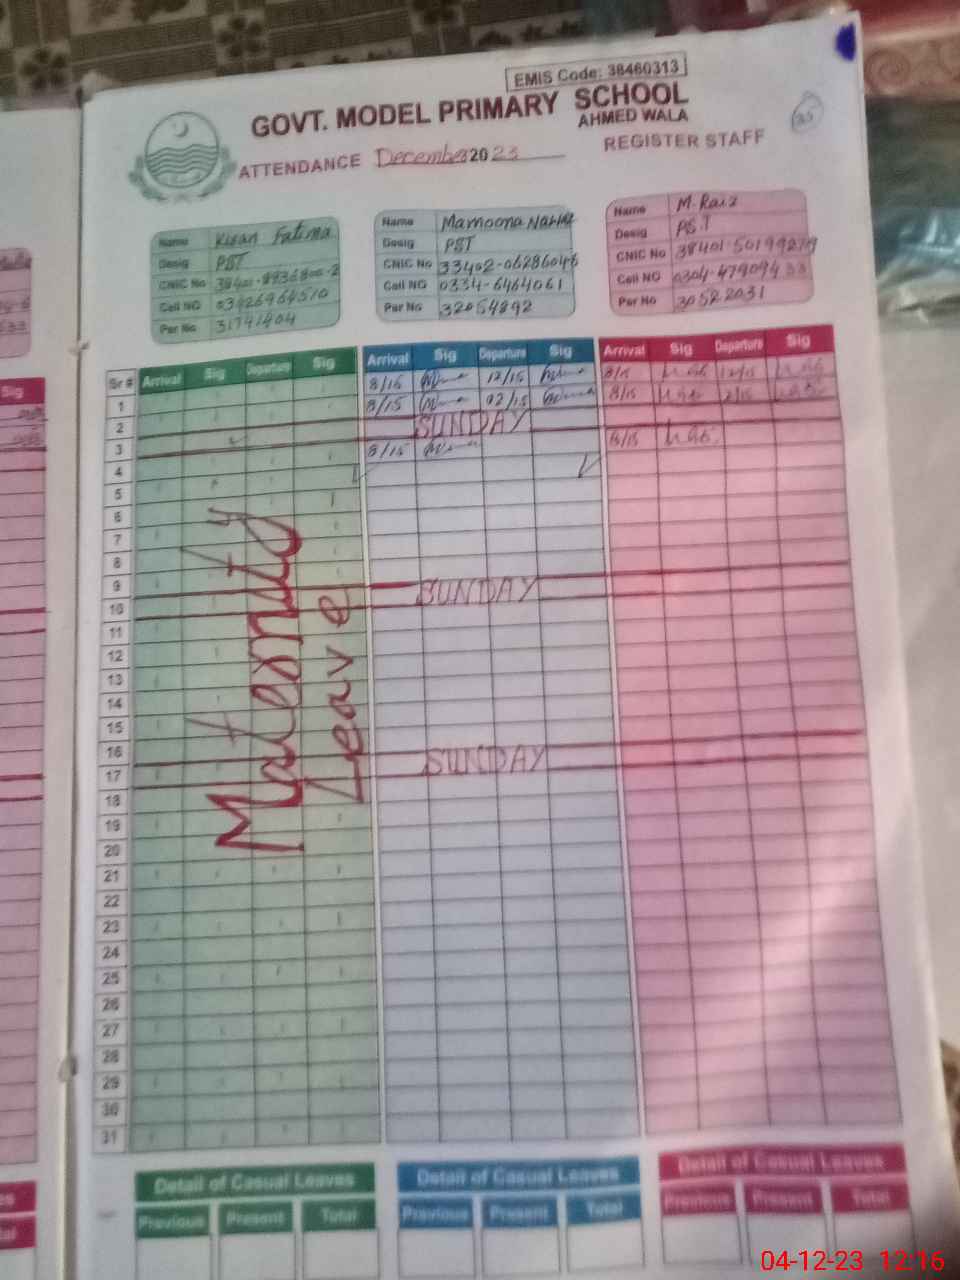 EMIS Code: 38460313
GOVT. MODEL PRIMARY SCHOOL
AHMED WALA
ATTENDANCE December 2023 REGISTER STAFF
Name Kiran Fatima
Desig PST
CNIC No 38401-8936800-2
Cell NO 03426964510
Per No 31741404
Name Mamoona
Desig PST
CNIC No 33402-0628604-6
Cell NO 0334-6464061
Per No 32054892
Name M. Raiz
Desig PST
CNIC No 38401-5019927-9
Cell NO 0304-479094 33
Per No 30522031
Sr # Arrival Sig Departure Sig Arrival Sig Departure Sig Arrival Sig Departure Sig
8/15 12/15 8/15 12/15
1 8/15 02/15 8/15 2/15
2 SUNDAY
3 8/15 8/15
4
5
6
7
8
9
10 SUNDAY
11
12
13
14
15
16
17 SUNDAY
18
19
20
21
22
23
24
25
26
27
28
29
30
31
Maternity
Leave
Detail of Casual Leaves
Previous Present Total
Detail of Casual Leaves
Previous Present Total
Detail of Casual Leaves
Previous Present Total
04-12-23 12:16